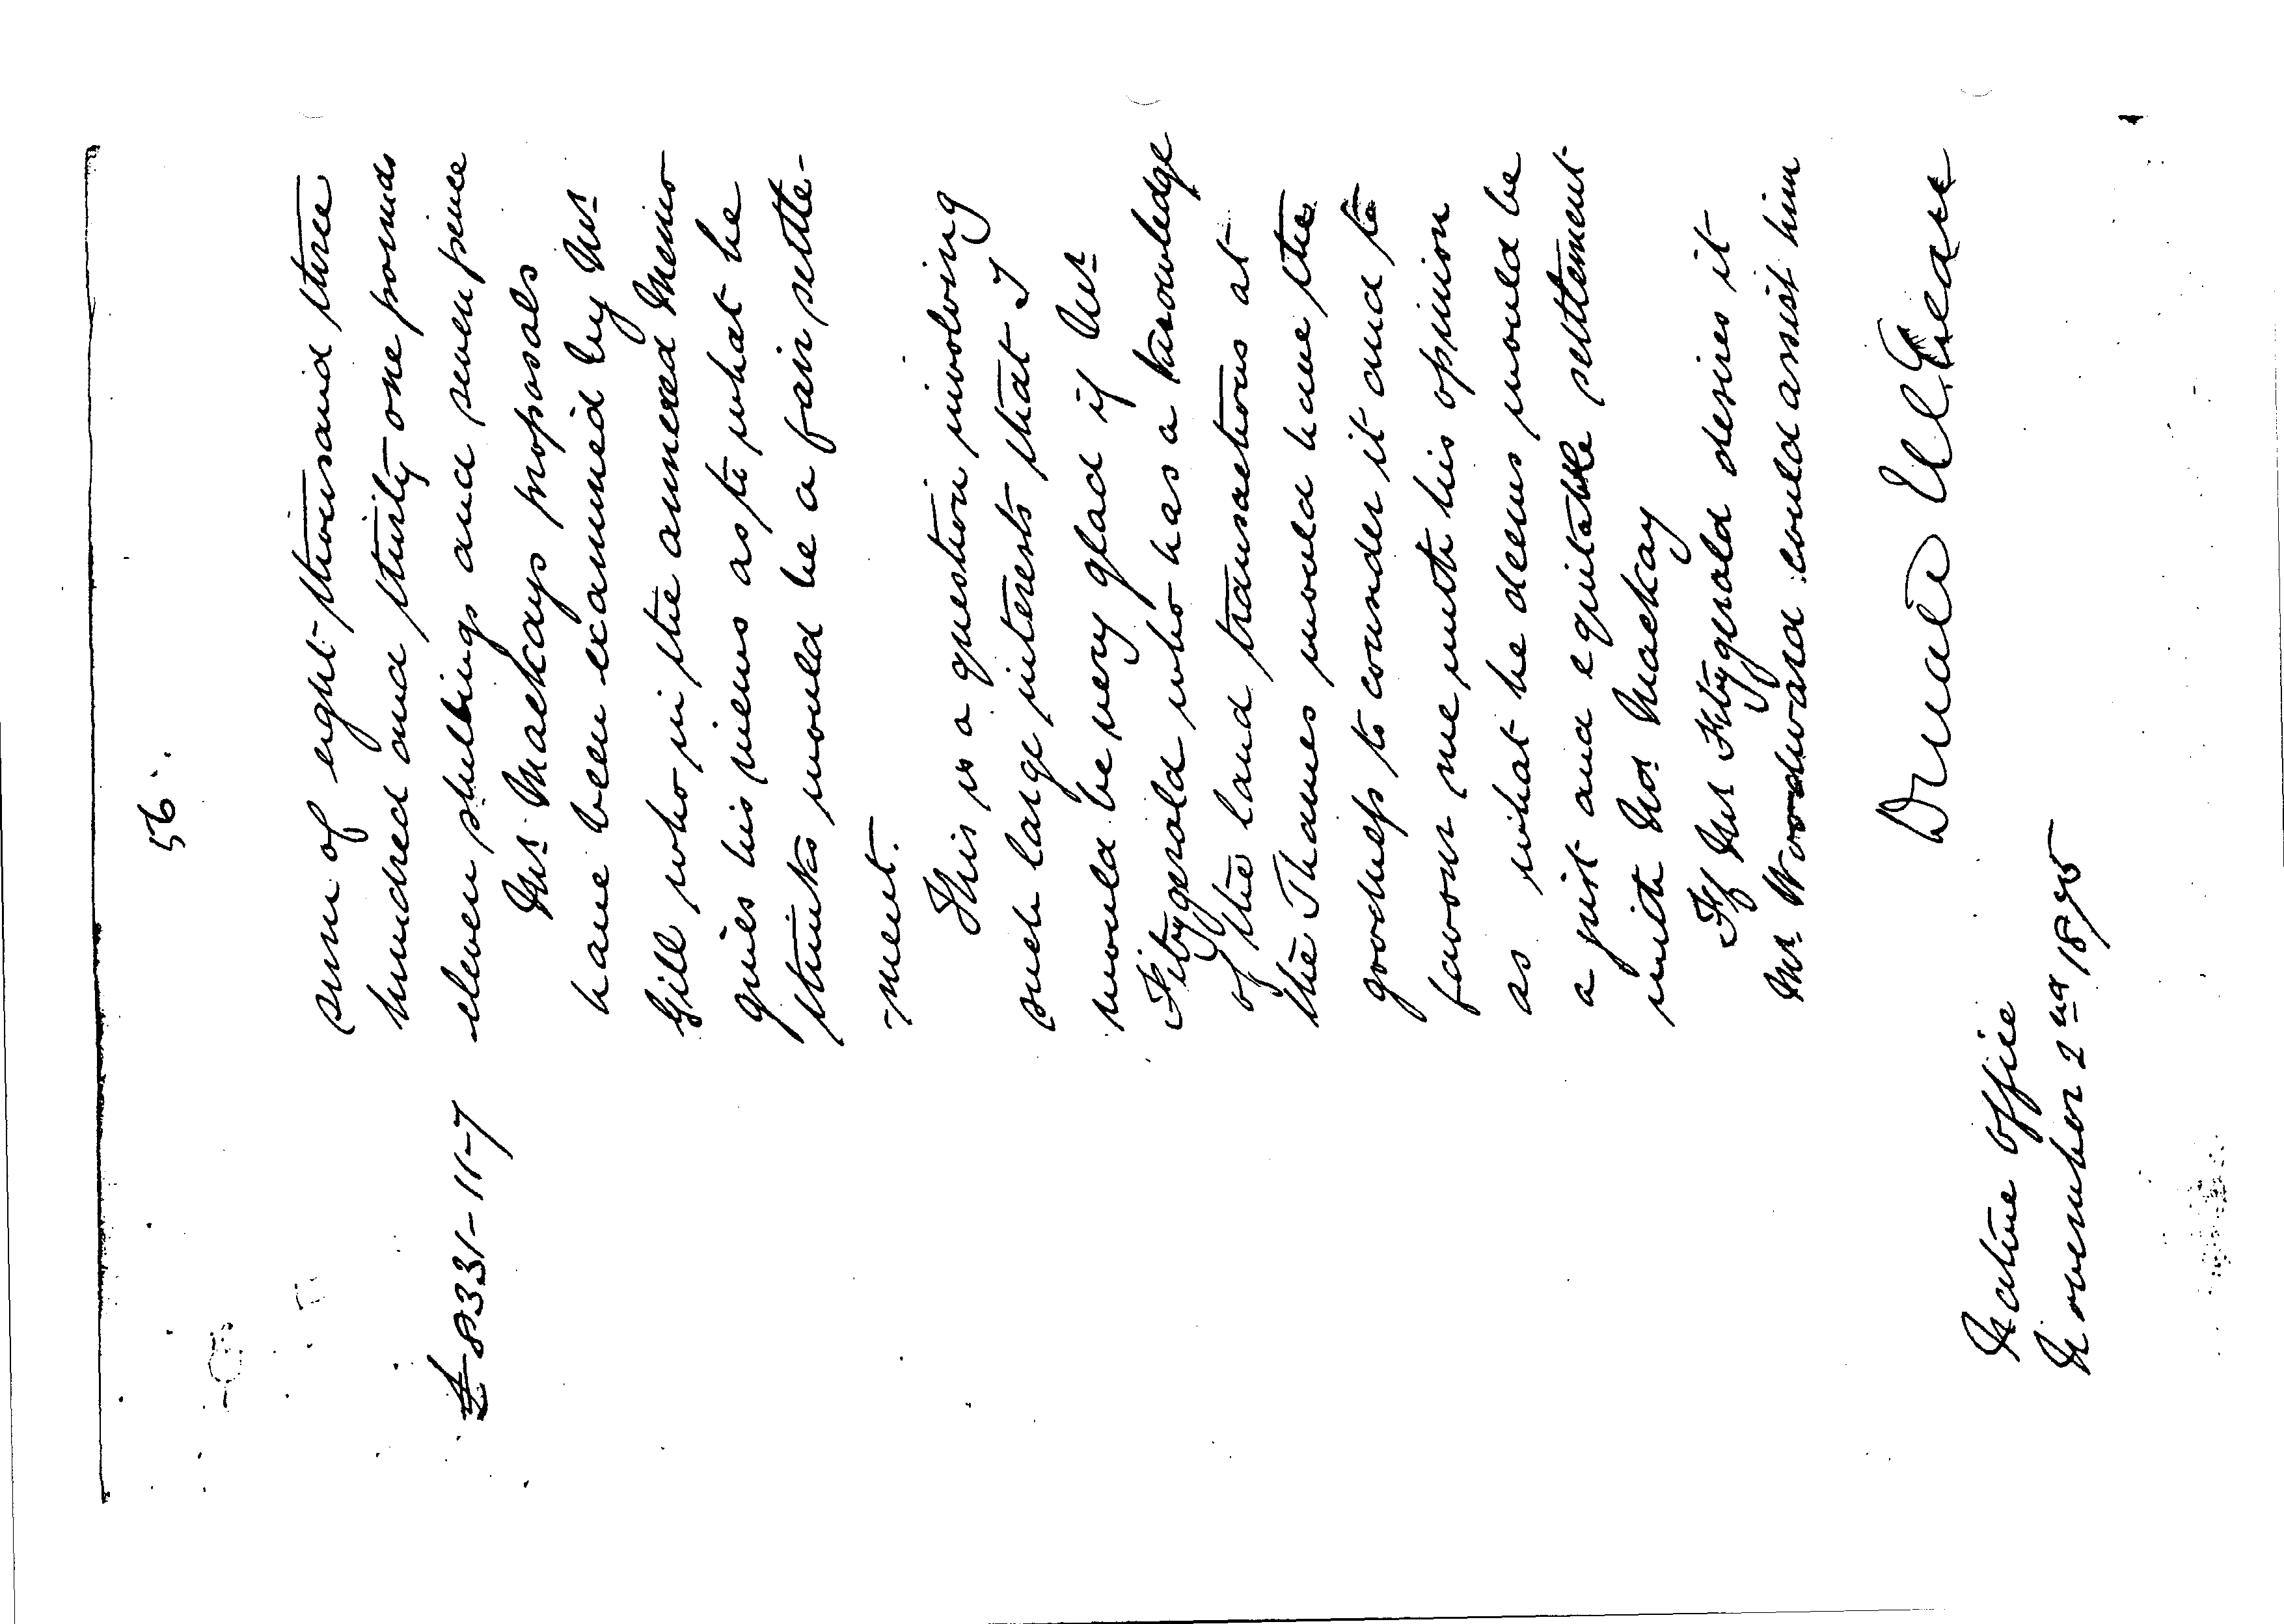 56.
sum of eight thousand three
hundred and thirty one pounds
£8331-11-7 eleven shillings and seven pence
Mr. Mackays proposals
have been examined by Mr.
Gill who in the annexed Memo
gives his views as to what he
thinks would be a fair settle-
-ment.
This is a question involving
such large interests that I
would be very glad if Mr.
Fitzgerald who has a knowledge
of the land transactions at
the Thames would have the
goodness to consider it and to
favour me with his opinion
as what he deems would be
a just and equitable settlement
with Mr. Mackay
If Mr Fitzgerald desires it
Mr. Woodward could assist him
Donald McLean
Native Office
November 2nd 1875